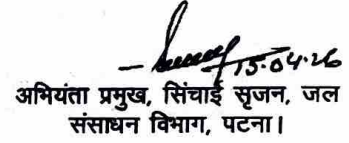 15.04.26
अभियंता प्रमुख, सिंचाई सृजन, जल
संसाधन विभाग, पटना।